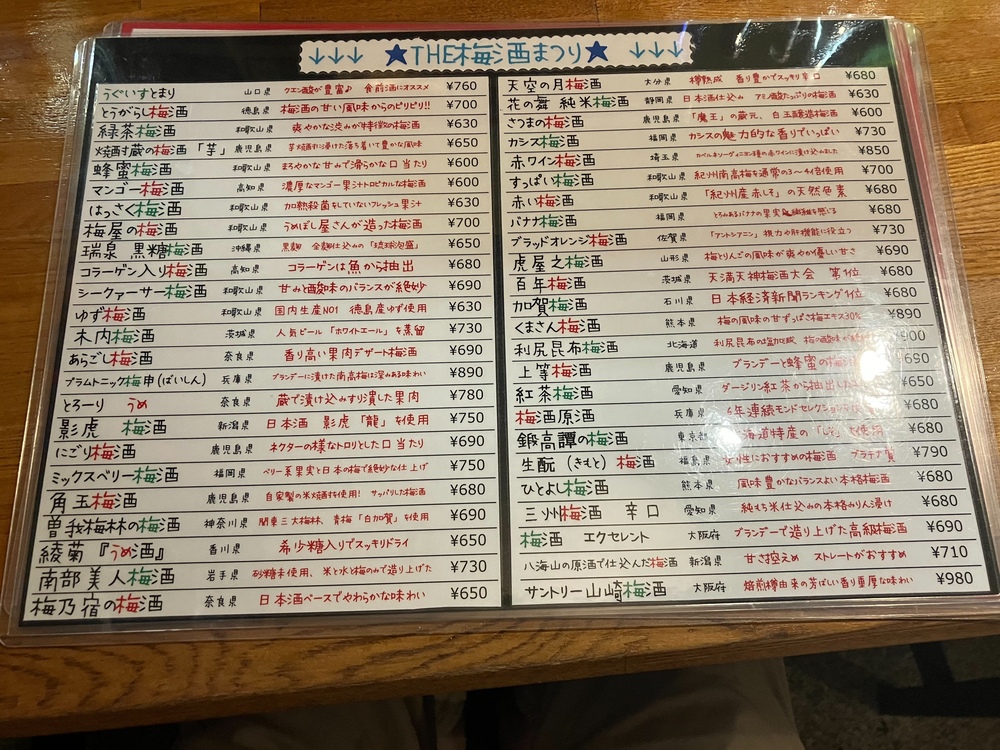 ↓↓↓ ★THE梅酒まつり★ ↓↓↓
うぐいすとまり 山口県 クエン酸が豊富♪ 食前酒にオススメ ¥760
とうがらし梅酒 徳島県 梅酒の甘い風味からのピリピリ!! ¥700
緑茶梅酒 和歌山県 爽やかな渋みが特徴の梅酒 ¥630
焼酎蔵の梅酒「芋」 鹿児島県 芋焼酎に漬けた落ち着いて豊かな風味 ¥650
蜂蜜梅酒 和歌山県 まろやかな甘みで滑らかな口当たり ¥600
マンゴー梅酒 高知県 濃厚なマンゴー果汁トロピカルな梅酒 ¥600
はっさく梅酒 和歌山県 加熱殺菌をしていないフレッシュ果汁 ¥630
梅屋の梅酒 和歌山県 うめぼし屋さんが造った梅酒 ¥700
瑞泉 黒糖梅酒 沖縄県 黒麹 全麹仕込みの「琉球泡盛」 ¥650
コラーゲン入り梅酒 高知県 コラーゲンは魚から抽出 ¥680
シークァーサー梅酒 和歌山県 甘みと酸味のバランスが絶妙 ¥690
ゆず梅酒 和歌山県 国内生産NO1 徳島産ゆず使用 ¥630
木内梅酒 茨城県 人気ビール「ホワイトエール」を蒸留 ¥730
あらごし梅酒 奈良県 香り高い果肉デザート梅酒 ¥690
プラムトニック梅申(ばいしん) 兵庫県 ブランデーに漬けた南高梅は深みある味わい ¥890
とろーり うめ 奈良県 蔵で漬け込みすり潰した果肉 ¥780
影虎 梅酒 新潟県 日本酒 影虎「龍」を使用 ¥750
にごり梅酒 鹿児島県 ネクターの様なトロリとした口当たり ¥690
ミックスベリー梅酒 福岡県 ベリー系果実と日本の梅で絶妙な仕上げ ¥750
角玉梅酒 鹿児島県 自家製の米焼酎を使用! サッパリした梅酒 ¥680
曽我梅林の梅酒 神奈川県 関東三大梅林、青梅「白加賀」を使用 ¥690
綾菊『うめ酒』 香川県 希少糖入りでスッキリドライ ¥650
南部美人梅酒 岩手県 砂糖未使用、米と水と梅のみで造り上げた ¥730
梅乃宿の梅酒 奈良県 日本酒ベースでやわらかな味わい ¥650
天空の月梅酒 大分県 樽熟成 香り豊かでスッキリ辛口 ¥680
花の舞 純米梅酒 静岡県 日本酒仕込み アミノ酸たっぷりの梅酒 ¥630
さつまの梅酒 鹿児島県 「魔王」の蔵元、白玉醸造梅酒 ¥600
カシス梅酒 福岡県 カシスの魅力的な香りでいっぱい ¥730
赤ワイン梅酒 埼玉県 カベルネソーヴィニヨン種の赤ワインに漬け込みました ¥850
すっぱい梅酒 和歌山県 紀州南高梅を通常の3〜4倍使用 ¥700
赤い梅酒 和歌山県 「紀州産赤しそ」の天然色素 ¥680
バナナ梅酒 福岡県 とろみあるバナナの果実を感じる ¥680
ブラッドオレンジ梅酒 佐賀県 「アントシアニン」視力や肝機能に役立つ ¥730
虎屋之梅酒 山形県 梅とりんごの風味が爽やか優しい甘さ ¥690
百年梅酒 茨城県 天満天神梅酒大会 第1位 ¥680
加賀梅酒 石川県 日本経済新聞ランキング1位 ¥680
くまさん梅酒 熊本県 梅の風味の甘ずっぱさ梅エキス30% ¥890
利尻昆布梅酒 北海道 利尻昆布の塩加減 梅の酸味が ¥900
上等梅酒 鹿児島県 ブランデーと蜂蜜の梅酒 ¥680
紅茶梅酒 愛知県 ダージリン紅茶から抽出した ¥650
梅酒原酒 兵庫県 6年連続モンドセレクション ¥680
鍛高譚の梅酒 東京都 北海道特産の「しそ」を使用 ¥680
生酛(きもと)梅酒 福島県 女性におすすめの梅酒 プラチナ賞 ¥790
ひとよし梅酒 熊本県 風味豊かなバランスよい本格梅酒 ¥680
三州梅酒 辛口 愛知県 純もち米仕込みの本格みりん漬け ¥680
梅酒 エクセレント 大阪府 ブランデーで造り上げた高級梅酒 ¥690
八海山の原酒で仕込んだ梅酒 新潟県 甘さ控えめ ストレートがおすすめ ¥710
サントリー山崎梅酒 大阪府 焙煎樽由来の芳ばしい香り重厚な味わい ¥980